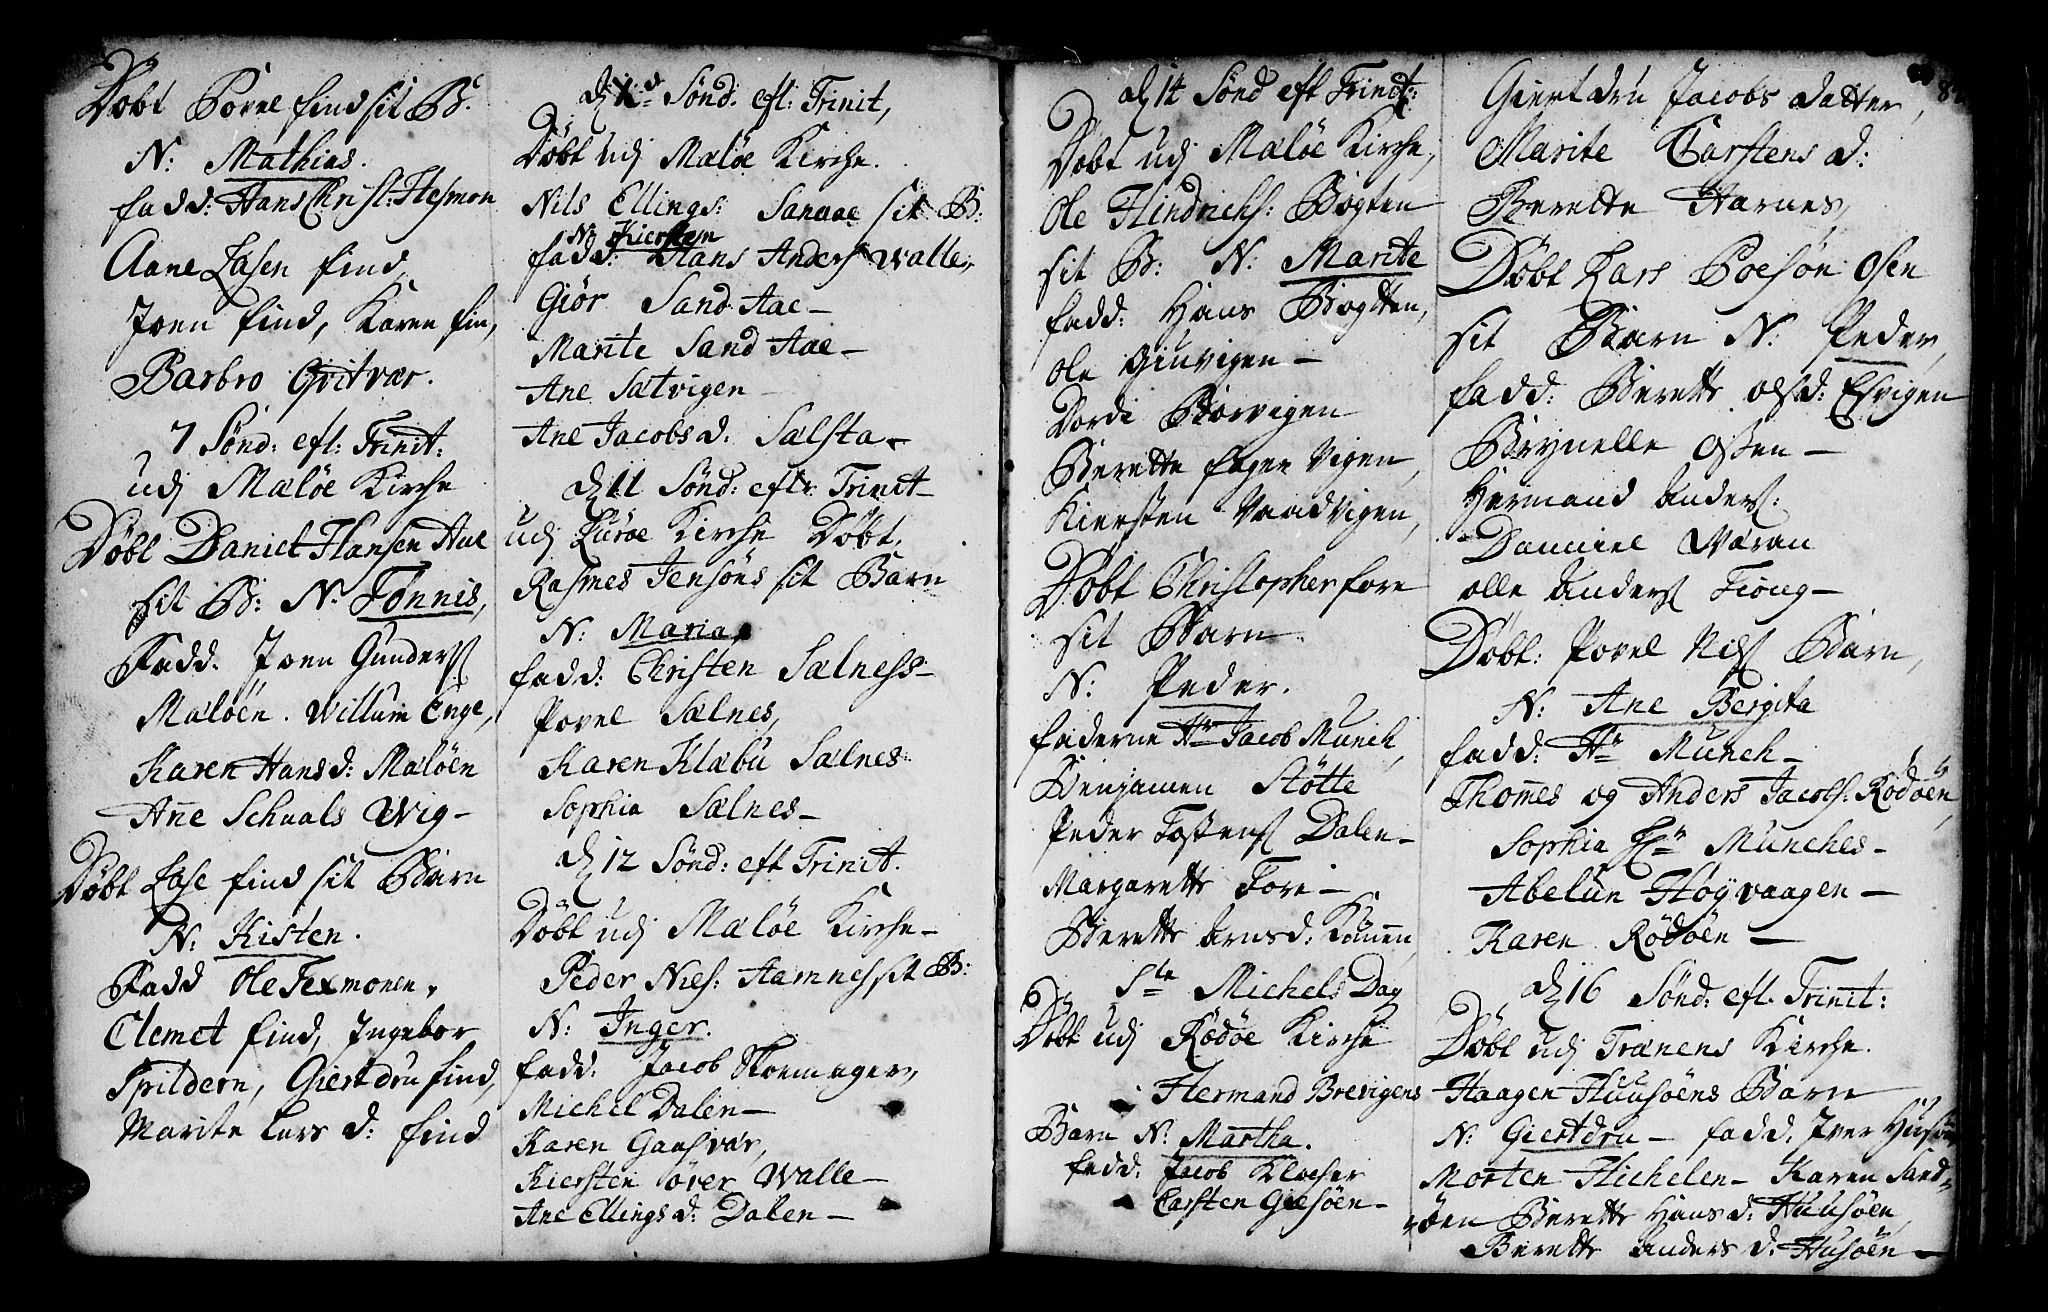 Döbt Povel find sit B.
N: Mathias.
fadd: Hans Christ: Hesmon
Aane Lasen find,
Joen find, Karen fin,
Barbro Qvitvær.
7 Sönd: eft: Trinit:
udj Mæløe Kirche
Döbt Daniel Hansen Aae
sit B: N: Tönnis,
Fadd. Joen Gunders
Mæløen. Willum Enge,
Karen Hans d: Mæløen
Ane Schuals Wig-
Döbt Lase find sit Barn
N: Kisten.
Fadd Ole Texmonen,
Clemet find, Ingebor
Spildern, Giertdru find,
Marite Lars d: find
Sönd. eft: Trinit,
Döbt udj Mæløe Kirche.
Nils Ellings: Sanaae sit B:
N: Kiersten
fadd: Hans Anders Walle,
Giör Sand Aae-
Marite Sand Aae-
Ane Sætvigen
Ane Jacobs d. Sælsta-
D. 11 Sönd: eft: Trinit-
udj Luröe Kirche Döbt,
Rasmes Jensöns sit Barn
N: Maria,
fadd: Christen Sælness-
Povel Sælnes,
Karen Klæbu Sælnes:
Sophia Sælnes-
D. 12 Sönd: eft Trinit.
Döbt udj Mæløe Kirche-
Peder Niels: Hamnes sit B:
N: Inger.
fadd. Jacob Skomager,
Michel Dalen-
Karen Gaasvær,
Kiersten över Walle-
Ane Ellings d: Dalen-
D. 14 Sönd eft Trinit:
Döbt udj Mæløe Kirche,
Ole Hindrichs: Bögten
sit B: N: Marite
fadd: Hans Bögtten,
Ole Giuvigen-
DordiBorvigen
Berette fagervigen,
Kiersten Vaadvigen,
Döbt Christopher fore
sit Barn
N: Peder.
faderne Hr Jacob Munch,
Benjamen Stötte
Peder Tostens Dalen-
Margarette Fore-
Berette Arns d: Kömen,
Ste Michels Dag
Döbt udj Rödöe Kirche
Hermand Brevigens
Barn N: Martha.
fadd: Jacob Klocker
Carsten Giesöen-
Giertdru Jacobs datter,
Marite Carstens d:
Berette Harnes,
Döbt Lars Poesön Osen
sit Barn N: Peder,
fadd: Berette Ols d: Esvigen
Brynelle Osten-
Hermand Anders:
Danniel Wæran
Olle Anders Tiong-
Döbt: Povel Nils Barn,
N: Ane Bergita
fadd: Hr Munch-
Thomes og Anders Jacobs: Rödöen,
Sophia Munches-
Abelun Höyvaagen-
Karen Rödöen-
D. 16 Sönd: eft. Trinit:
Döbt udj Trænens Kirche.
Haagen Huusöens Barn
N: Giertdru- fadd. Iver Husöen
Morten Hichelen- Karen Sand-
öen Berette Hans d: Huusöen,
Berette Anders d: Husöen-